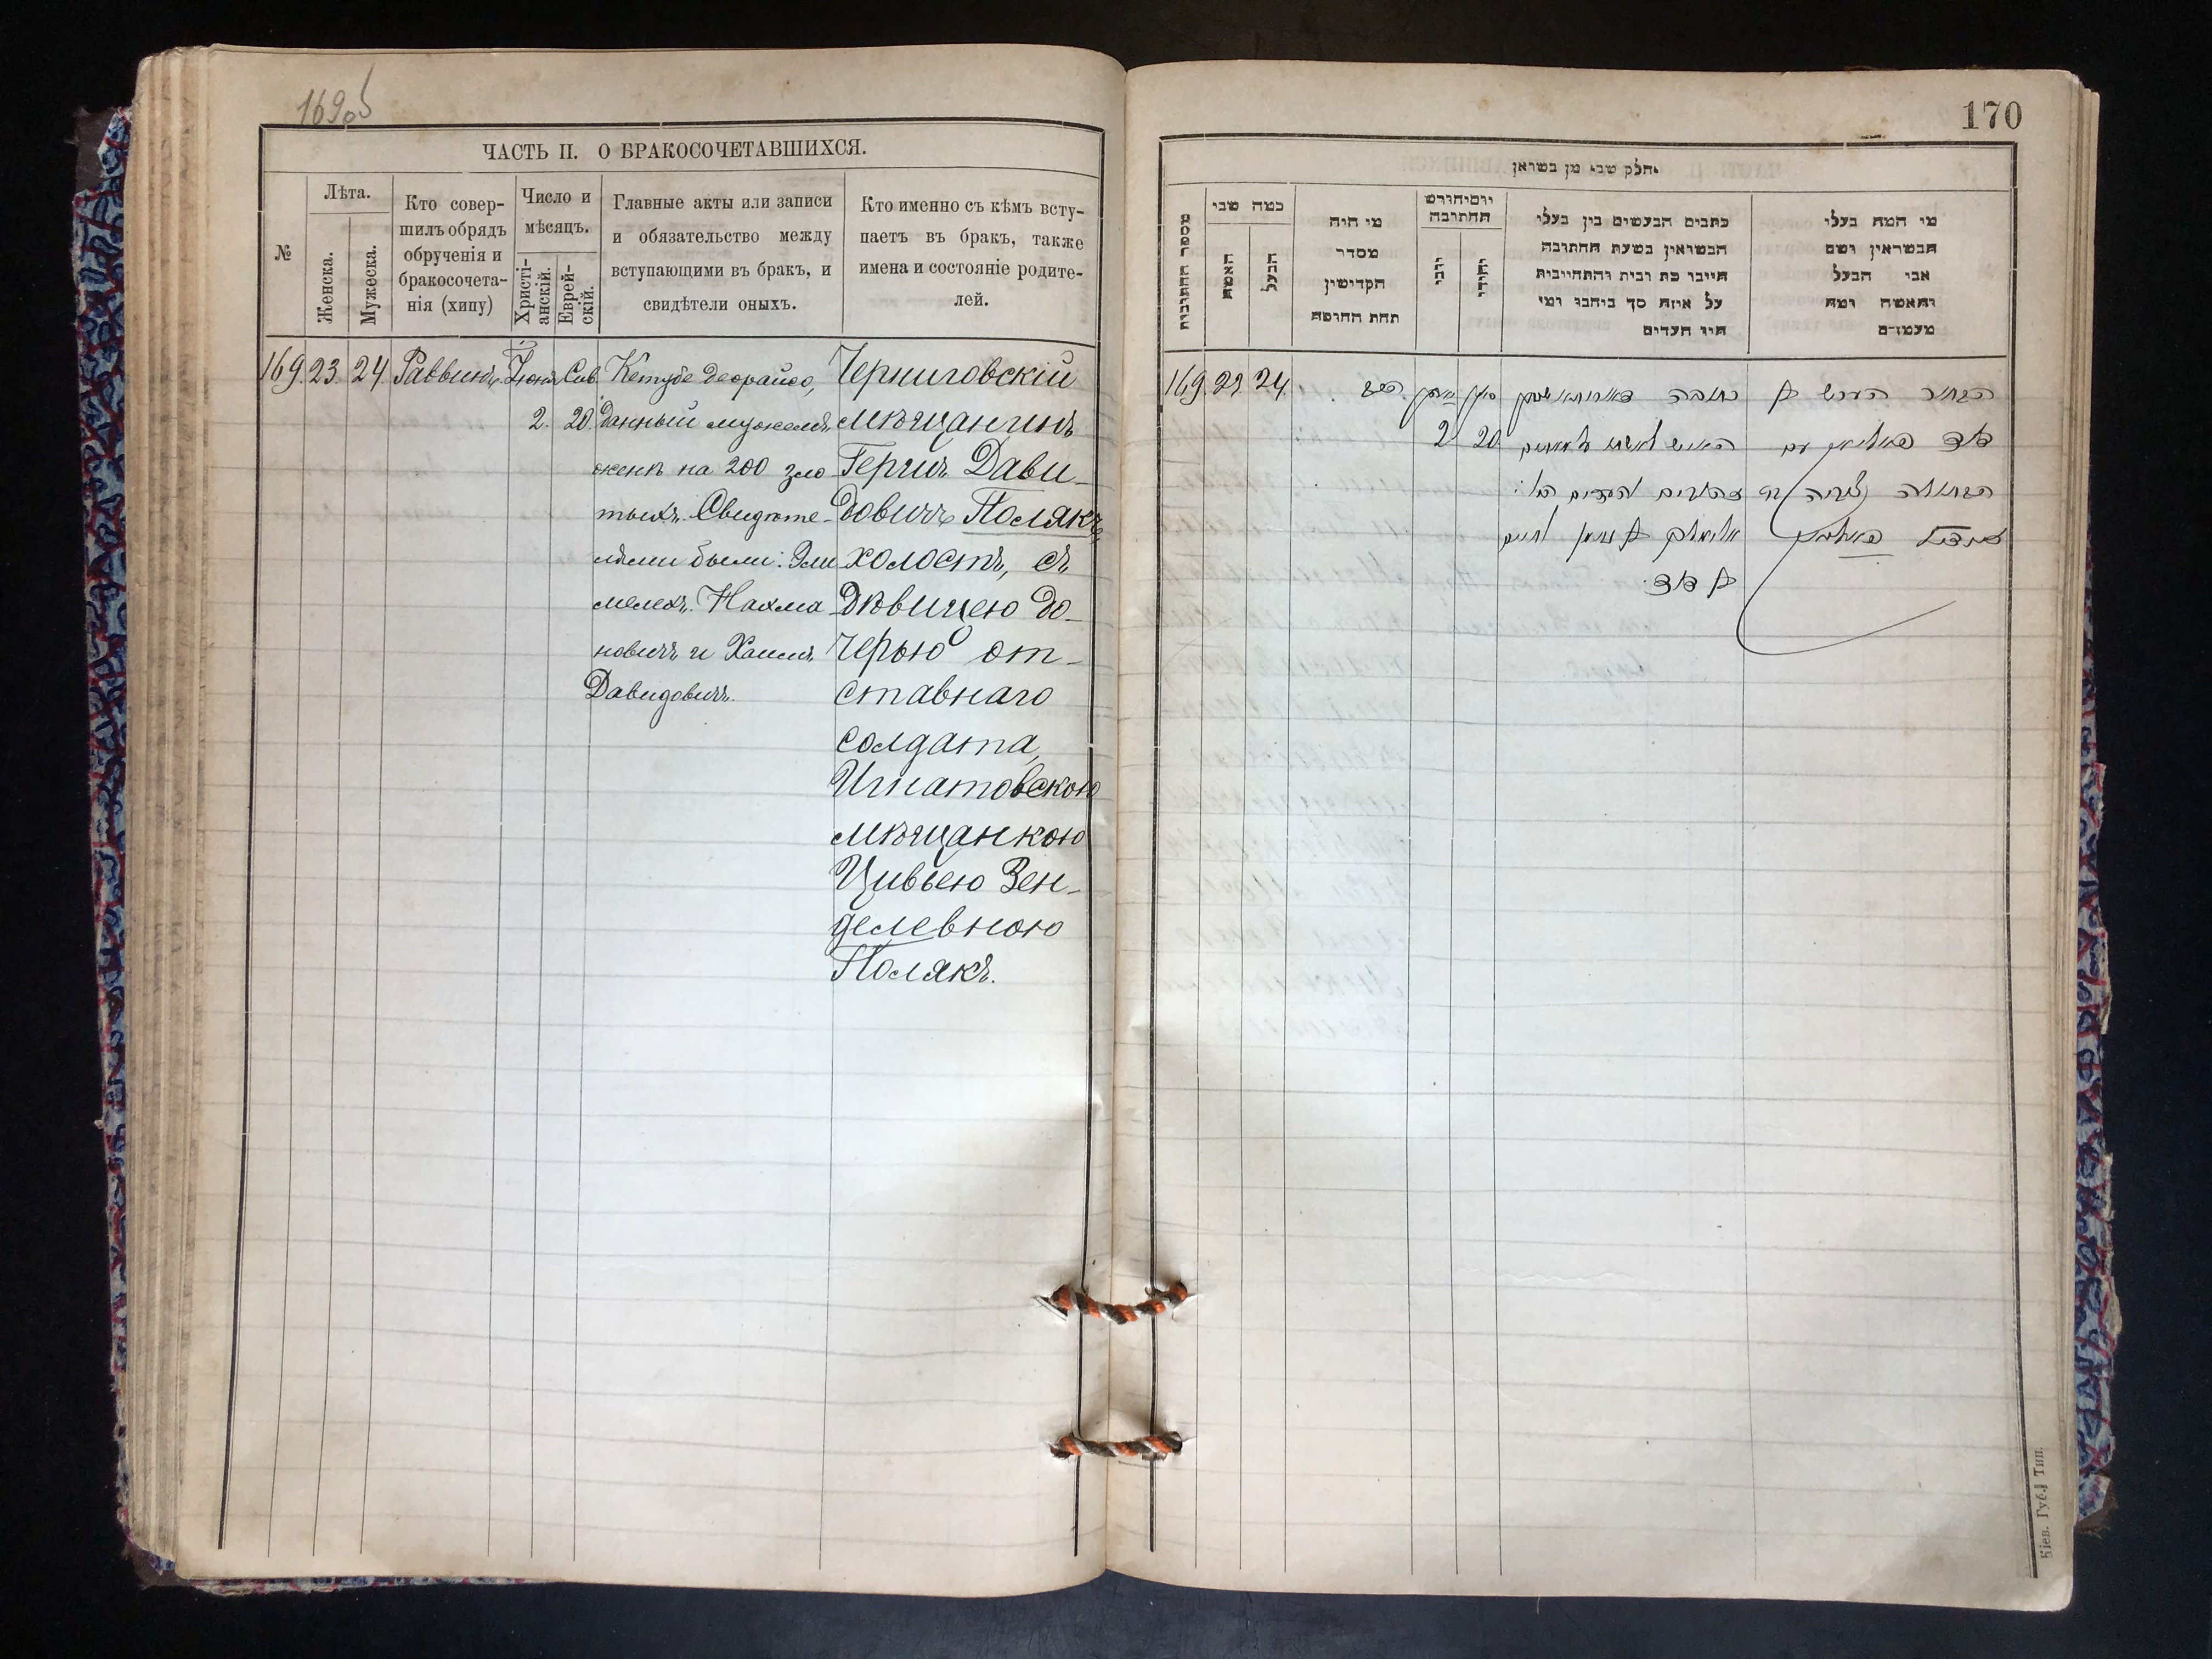 169об
ЧАСТЬ II. О БРАКОСОЧЕТАВШИХСЯ.
№
Лѣта.
Женска.
Мужеска.
Кто совер-
шилъ обрядъ
обрученія и
бракосочета-
нія (хипу)
Число и
мѣсяцъ.
Христі-
анскій.
Еврей-
скій.
Главные акты или записи
и обязательство между
вступающими въ бракъ, и
свидѣтели оныхъ.
Кто именно съ кѣмъ всту-
паетъ въ бракъ, также
имена и состояніе родите-
лей.
169. 23. 24. Раввинъ. Іюня 2. Сив. 20.
Кетубе деорайсо,
данный мужемъ
женѣ на 200 зло
тыхъ. Свидѣте-
лями были: Эли
мелехъ Нахма
новичъ и Хаимъ
Давидовичъ.
Черниговскій
мѣщанинъ
Гершъ Дави-
довичъ Полякъ,
холостъ, съ
дѣвицею до-
черью от-
ставнаго
солдата,
Игнатовскою
мѣщанкою
Цивьею Зен-
делевною
Полякъ.
170
חלק שני מן בשואן
מספר החתונות
כמה שני
האשה
הבעל
מי היה
מסדר
הקדישין
תחת החופה
יום וחודש
החתונה
יוני
יהודי
כתבים הנעשים בין בעלי
הנשואין בשעת החתונה
היינו כת ובית והתחייבות
על איזה סך ביהבו ומי
היו העדים
מי המה בעלי
הנשואין ושם
אבי הבעל
והאשה ומה
מעמדם
169. 23. 24.
2 20
הבחור הערש ב
דוד פאליאק עם
הבתולה צביה בת
זענדיל פאליאק
כתובה דאורייתא
אלימלך ב נחמן וחיים
ב דוד.
Кіев. Губ. Тип.